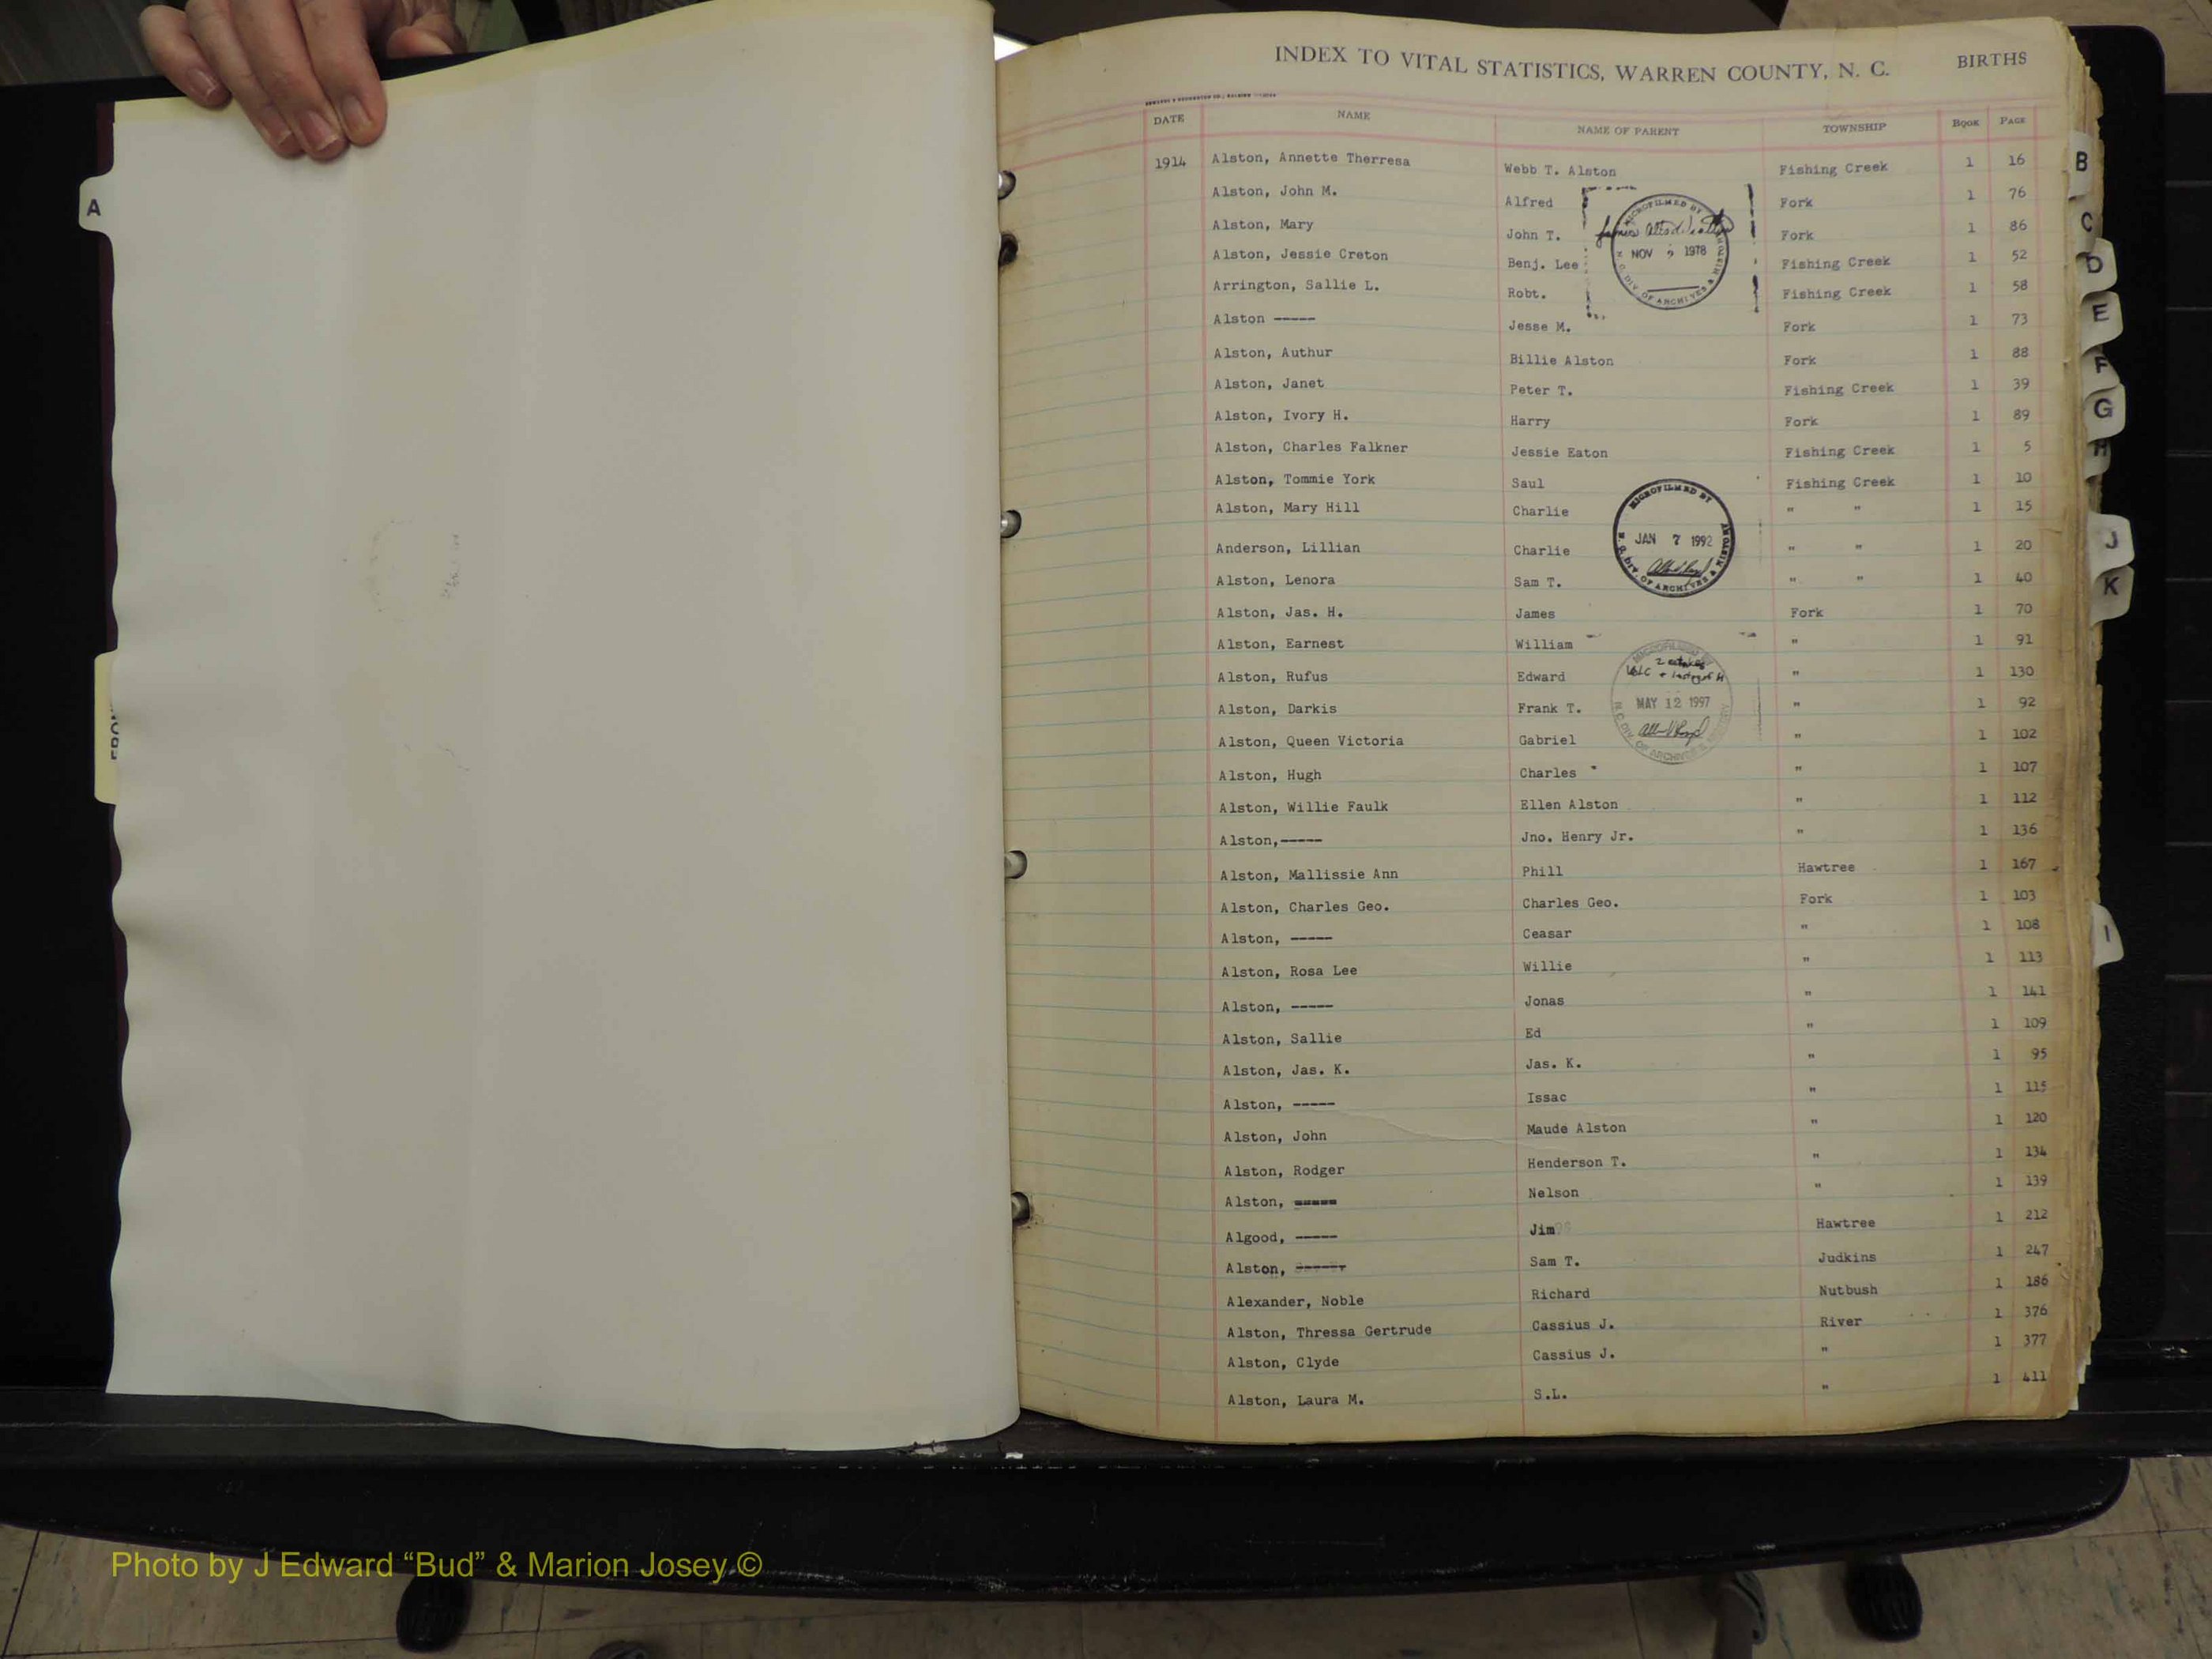 INDEX TO VITAL STATISTICS, WARREN COUNTY, N. C. BIRTHS
DATE NAME NAME OF PARENT TOWNSHIP BOOK PAGE
1914 Alston, Annette Therresa Webb T. Alston Fishing Creek 1 16
Alston, John M. Alfred Fork 1 76
Alston, Mary John T. Fork 1 86
Alston, Jessie Creton Benj. Lee Fishing Creek 1 52
Arrington, Sallie L. Robt. Fishing Creek 1 58
Alston ----- Jesse M. Fork 1 73
Alston, Authur Billie Alston Fork 1 88
Alston, Janet Peter T. Fishing Creek 1 39
Alston, Ivory H. Harry Fork 1 89
Alston, Charles Falkner Jessie Eaton Fishing Creek 1 5
Alston, Tommie York Saul Fishing Creek 1 10
Alston, Mary Hill Charlie " " 1 15
Anderson, Lillian Charlie " " 1 20
Alston, Lenora Sam T. " " 1 40
Alston, Jas. H. James Fork 1 70
Alston, Earnest William " 1 91
Alston, Rufus Edward " 1 130
Alston, Darkis Frank T. " 1 92
Alston, Queen Victoria Gabriel " 1 102
Alston, Hugh Charles " 1 107
Alston, Willie Faulk Ellen Alston " 1 112
Alston,----- Jno. Henry Jr. " 1 136
Alston, Mallissie Ann Phill Hawtree 1 167
Alston, Charles Geo. Charles Geo. Fork 1 103
Alston, ----- Ceasar " 1 108
Alston, Rosa Lee Willie " 1 113
Alston, ----- Jonas " 1 141
Alston, Sallie Ed " 1 109
Alston, Jas. K. Jas. K. " 1 95
Alston, ----- Issac " 1 115
Alston, John Maude Alston " 1 120
Alston, Rodger Henderson T. " 1 134
Alston, ----- Nelson " 1 139
Algood, ----- Jim Hawtree 1 212
Alston, ----- Sam T. Judkins 1 247
Alexander, Noble Richard Nutbush 1 186
Alston, Thressa Gertrude Cassius J. River 1 376
Alston, Clyde Cassius J. " 1 377
Alston, Laura M. S.L. " 1 411
MICROFILMED BY
NOV 1978
N. C. DIV. OF ARCHIVES &
MICROFILMED BY
JAN 7 1992
N. C. DIV. OF ARCHIVES & HISTORY
MICROFILMED BY
MAY 12 1997
N. C. DIV. OF ARCHIVES & HISTORY
A
B
C
D
E
F
G
H
J
K
I
Photo by J Edward “Bud” & Marion Josey ©